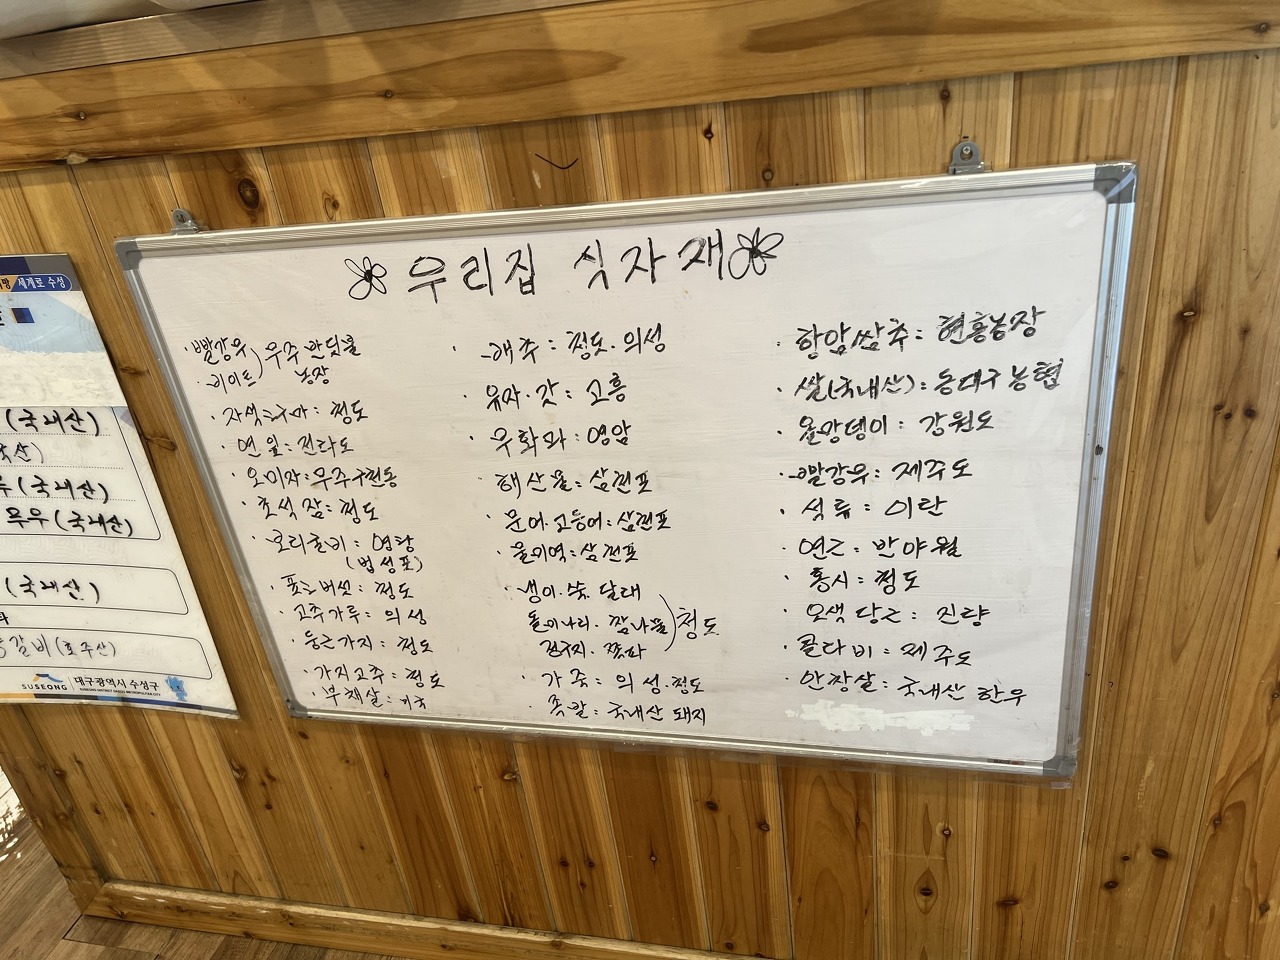 우리집 식자재
· 빨강무
· 비이트 ) 무주 반딧불
농장
· 자색고구마 : 청도
· 연잎 : 전라도
· 오미자 : 무주구천동
· 초석잠 : 청도
· 보리굴비 : 영광
(법성포)
· 표고버섯 : 청도
· 고추가루 : 의성
· 둥근가지 : 청도
· 가지고추 : 청도
· 부채살 : 미국
· 배추 : 청도. 의성
· 유자 · 갓 : 고흥
· 무화과 : 영암
· 해산물 : 삼천포
· 문어. 고등어 : 삼천포
· 물미역 : 삼천포
· 냉이. 쑥. 달래
돌미나리. 참나물 ) 청도
전구지. 쪽파
· 가죽 : 의성. 청도
· 족발 : 국내산 돼지
· 항암쌈추 : 현홍농장
· 쌀(국내산) : 동대구농협
· 돌망댕이 : 강원도
· 빨강무 : 제주도
· 석류 : 이란
· 연근 : 반야월
· 홍시 : 청도
· 오색당근 : 진량
· 콜라비 : 제주도
· 안창살 : 국내산 한우
세계로 수성
(국내산)
(국내산)
무우 (국내산)
(국내산)
갈비 (호주산)
SUSEONG 대구광역시 수성구